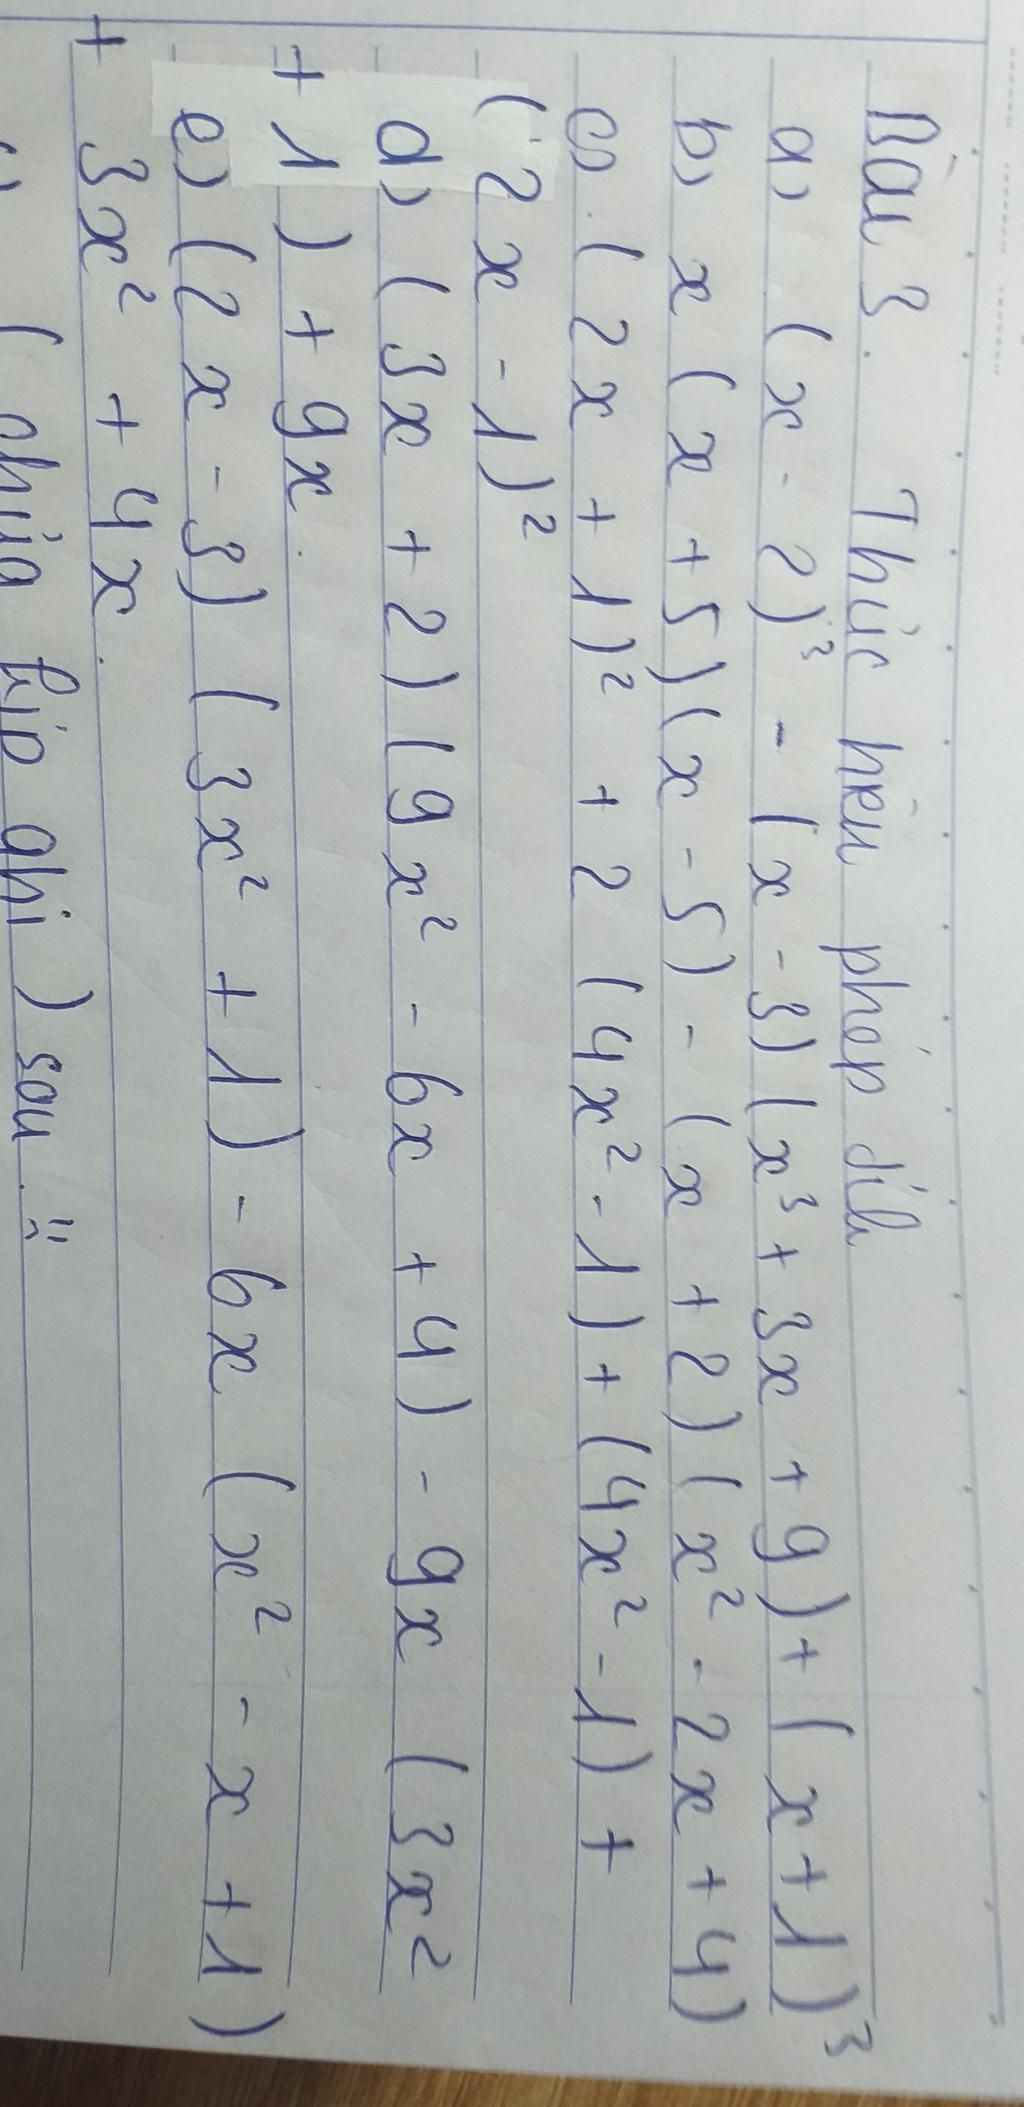 Bài 3. Thúc hện phép díh
a) (x - 2)³ - (x - 3)(x³ + 3x + 9) + (x + 1)³
b) x(x + 5)(x - 5) - (x + 2)(x² - 2x + 4)
c) (2x + 1)² + 2(4x² - 1) + (4x² - 1) +
(2x - 1)²
d) (3x + 2)(9x² - 6x + 4) - 9x (3x²
+ 1) + 9x.
e) (2x - 3)(3x² + 1) - 6x (x² - x + 1)
+ 3x² + 4x.
( chưa kịp ghi ) sau